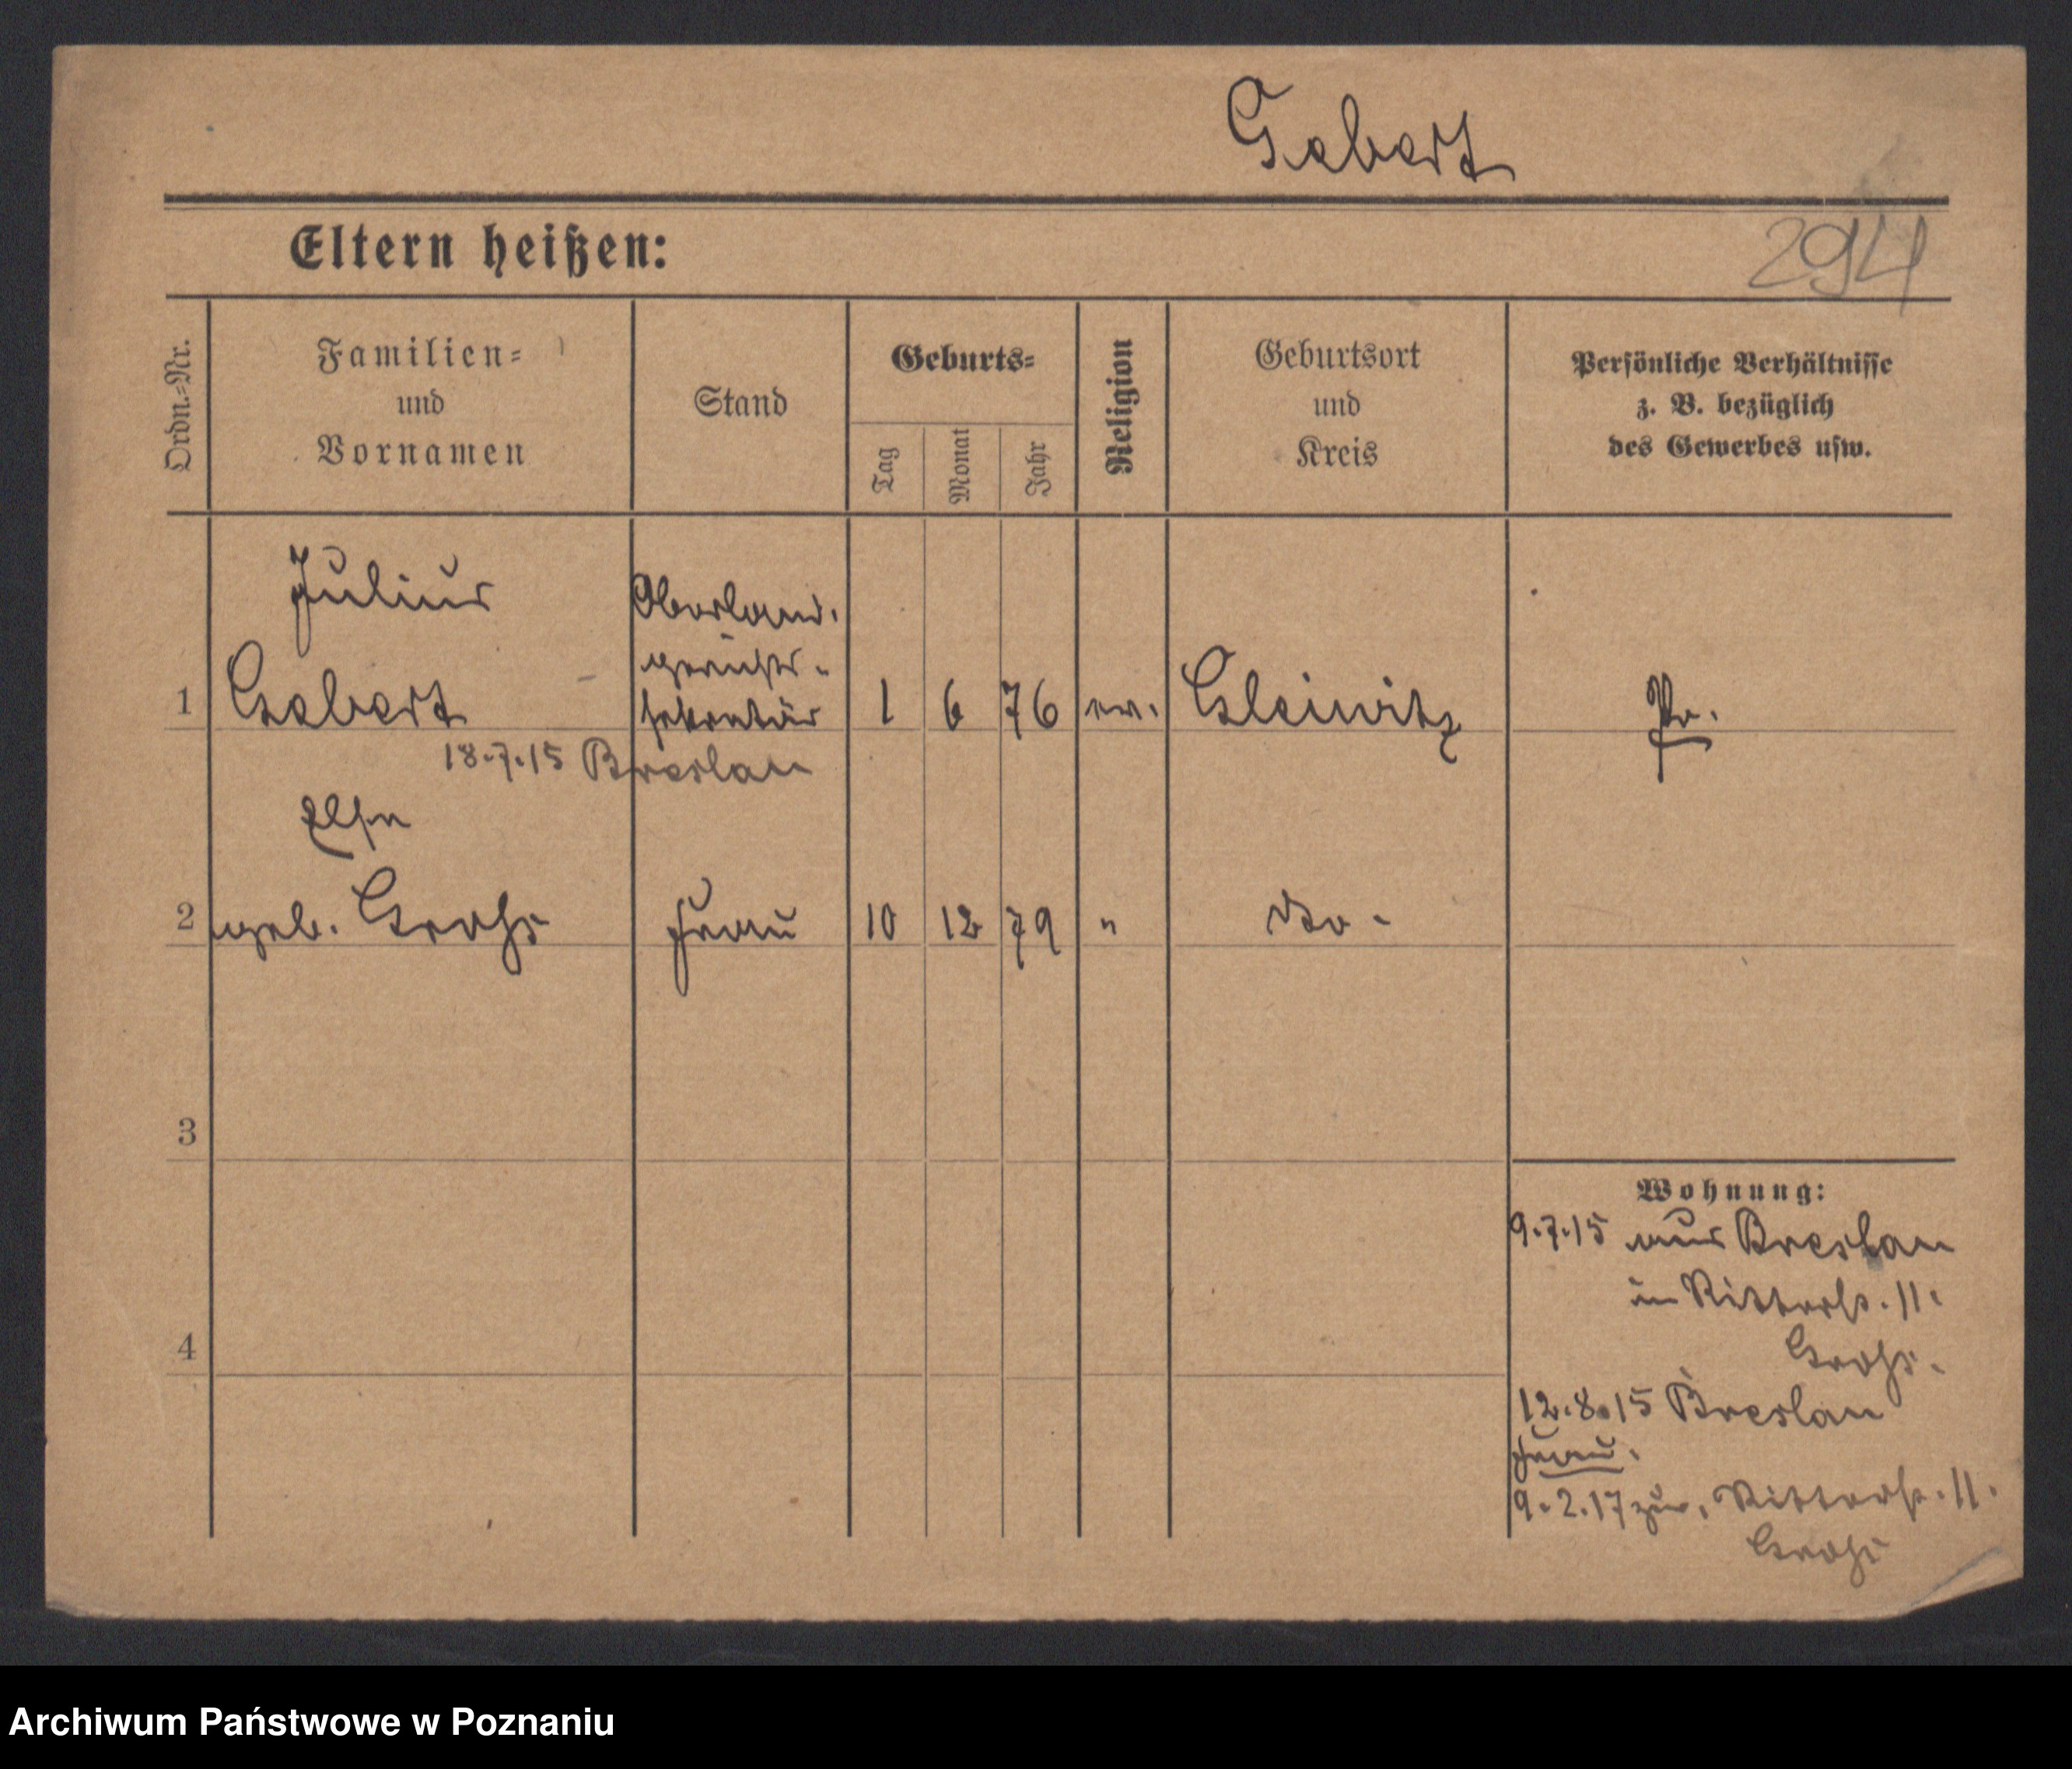 Gebert
Eltern heißen:
294
Ordn.-Nr.
Familien-
und
Vornamen
Stand
Geburts-
Tag
Monat
Jahr
Religion
Geburtsort
und
Kreis
Persönliche Verhältnisse
z. B. bezüglich
des Gewerbes usw.
Julius
Oberland.
gerichts-
1 Gebert sekretär 1 6 76 ev. Gleiwitz Pr.
18.7.15 Breslau
Else
2 geb. Frau 10 12 79 " do -
3
Wohnung:
9.7.15 aus Breslau
in Ritterstr. 11.
4
12.8.15 Breslau
Frau.
9.2.17 zur. Ritterstr. 11.
Archiwum Państwowe w Poznaniu